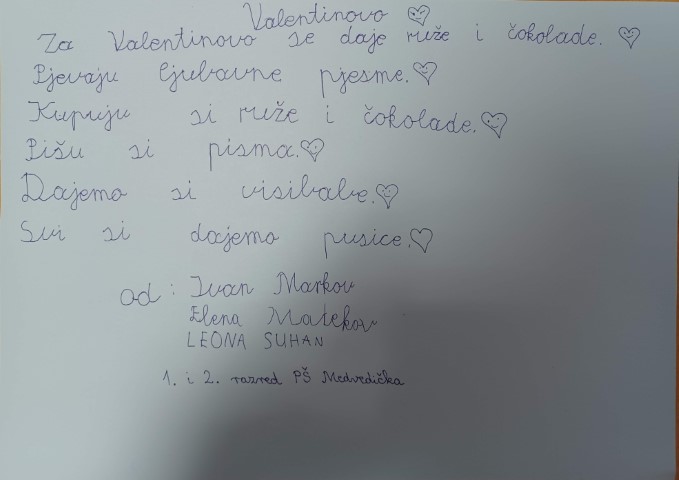 Valentinovo
Za Valentinovo se daje ruže i čokolade.
Pjevaju ljubavne pjesme.
Kupuju si ruže i čokolade.
Pišu si pisma.
Dajemo si visibabe.
Svi si dajemo pusice.
od: Ivan Markov
Elena Matekov
LEONA SUHAN
1. i 2. razred PŠ Medvedička